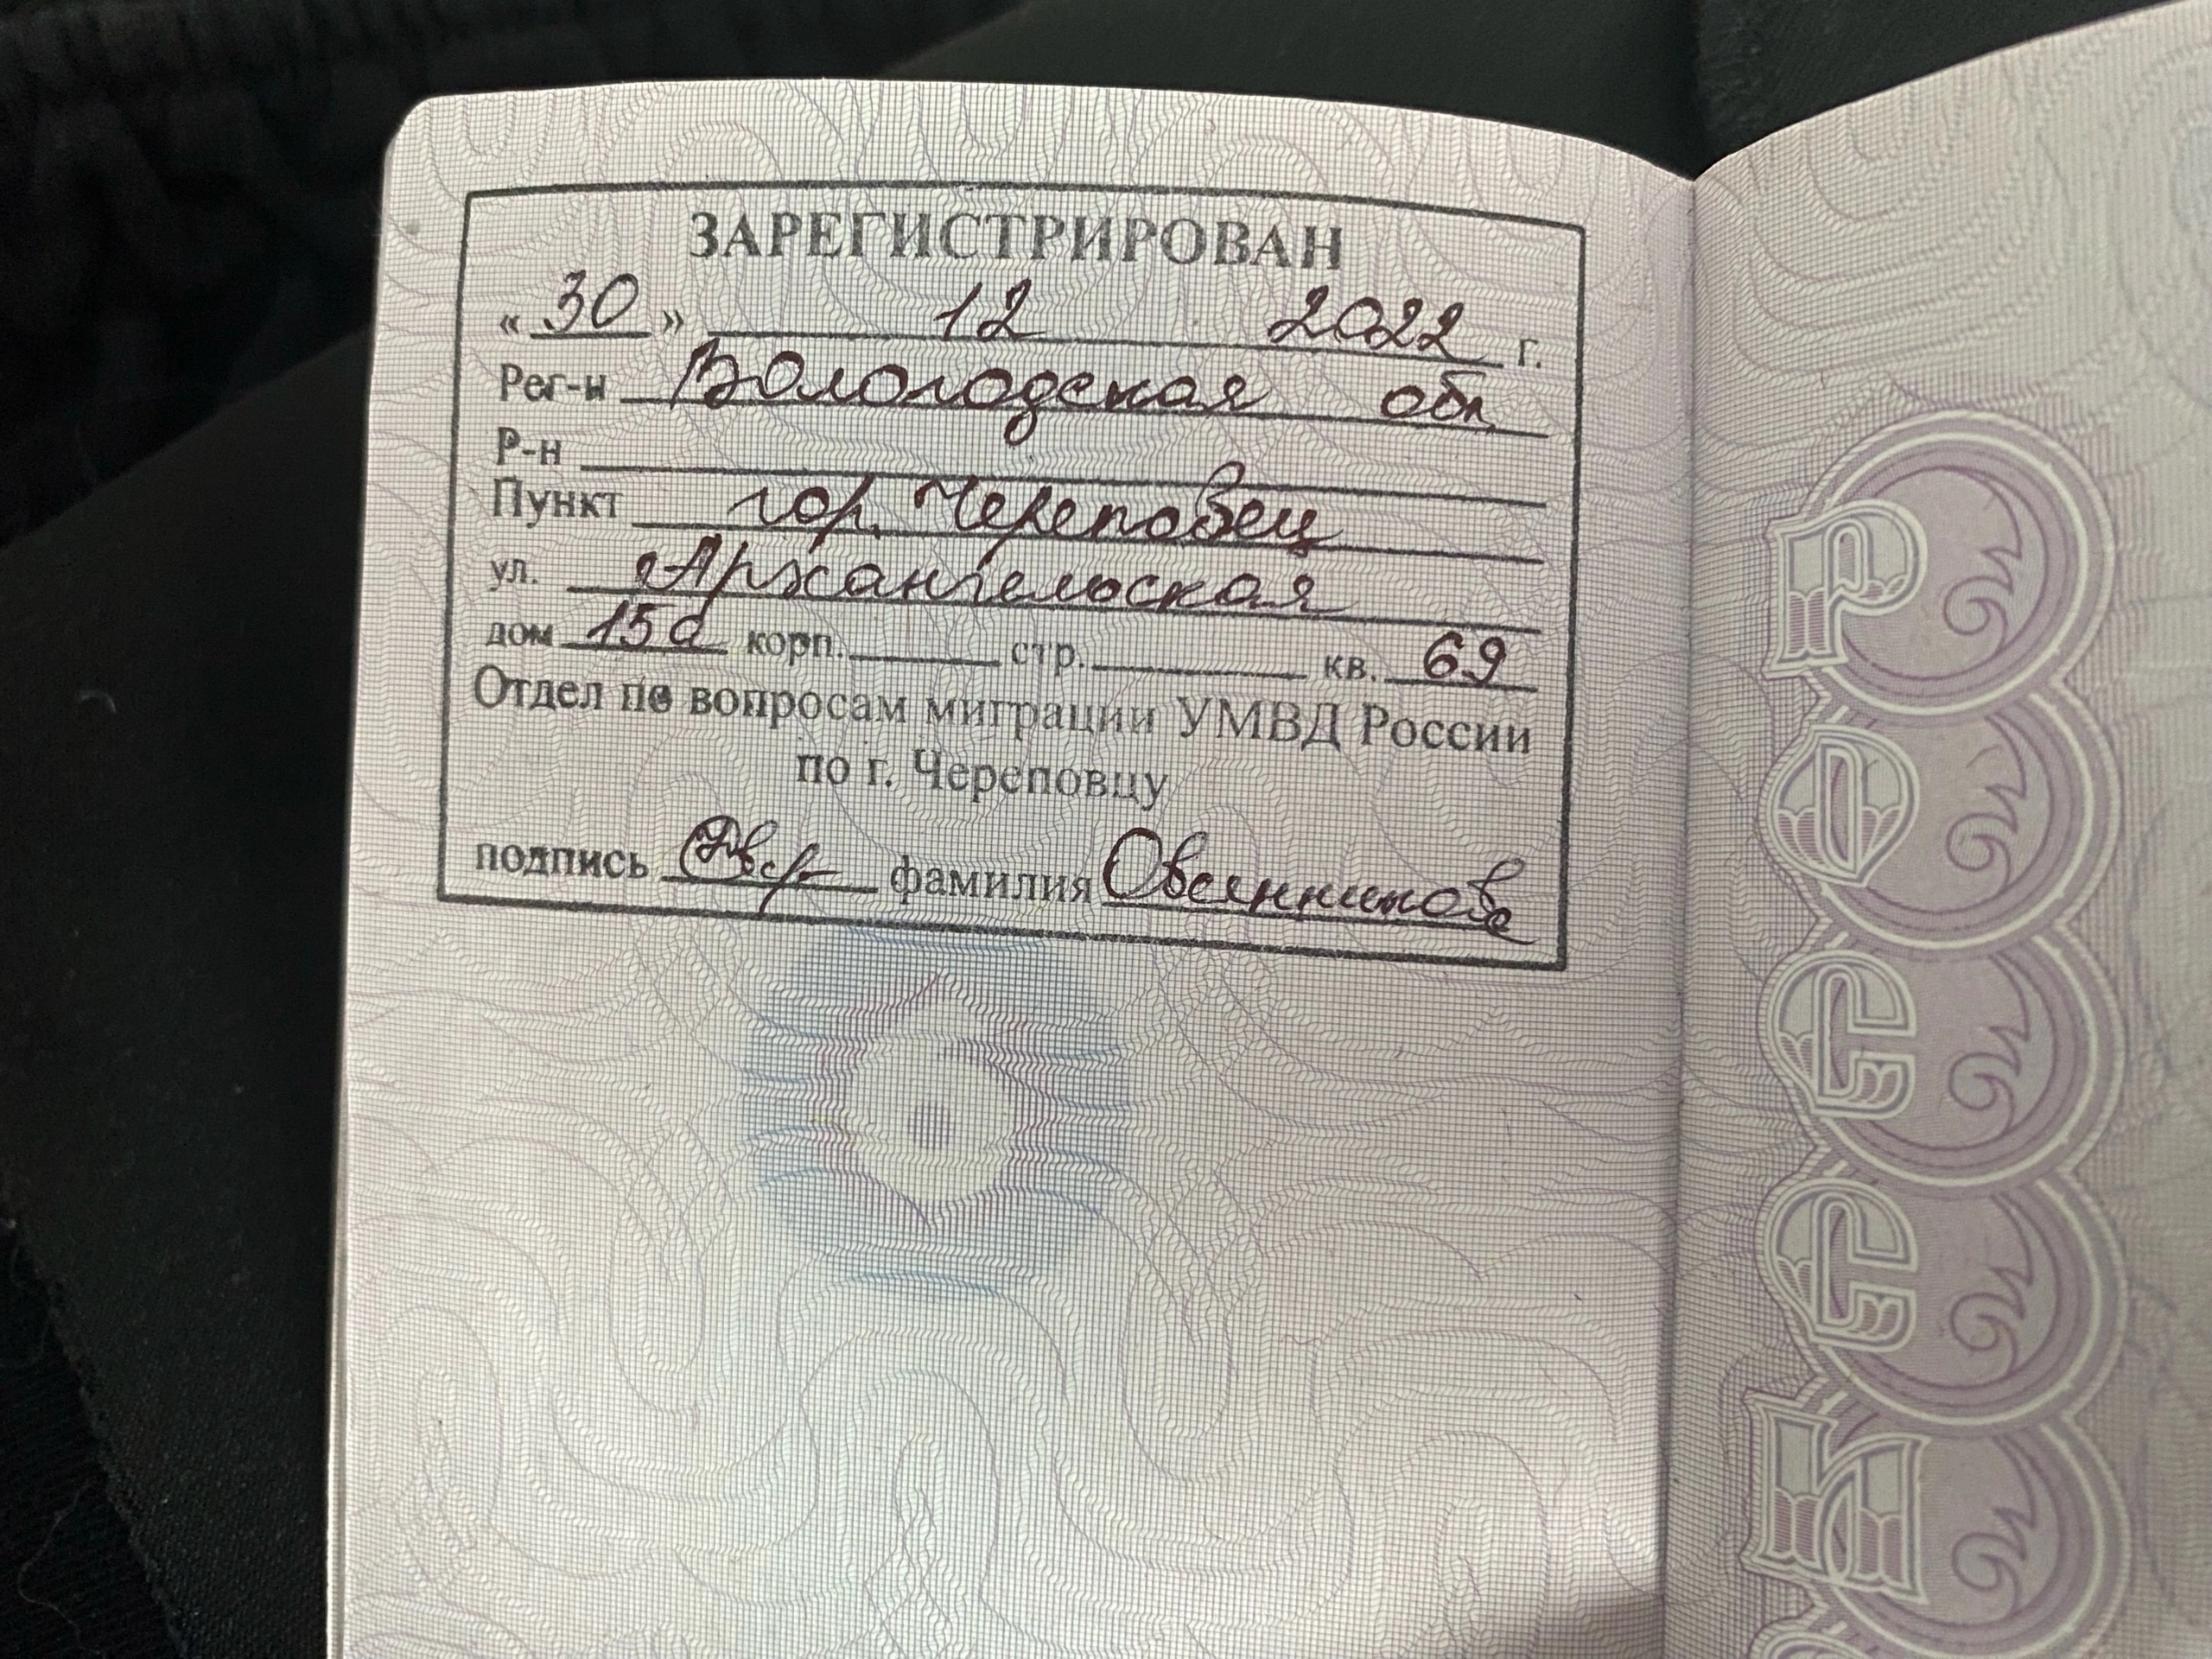 ЗАРЕГИСТРИРОВАН
« 30 » 12 2022 г.
Рег-н Вологодская обл
Р-н
Пункт гор. Череповец
ул. Архангельская
дом 15а корп. стр. кв. 69
Отдел по вопросам миграции УМВД России
по г. Череповцу
подпись фамилия Овсянникова
РОССИ